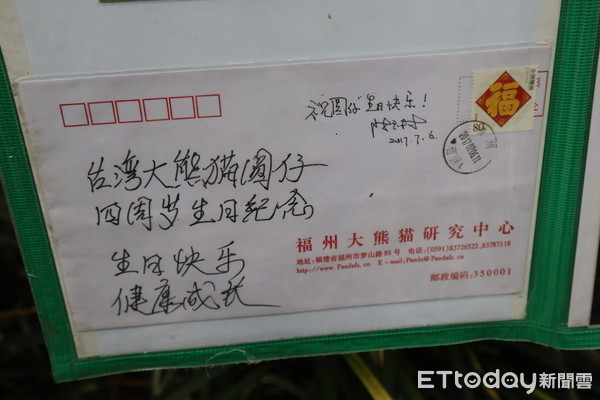 祝圆仔生日快乐!
2017.7.6.
中国邮政
福
80分
台湾大熊猫圆仔
四周岁生日纪念
生日快乐
健康成长
福州大熊猫研究中心
地址:福建省福州市梦山路88号 电话:(0591)83726522,83787118
http://www.Pandafz.cn E-mail:Panda@Pandafz.cn
邮政编码:350001
ETtoday新聞雲